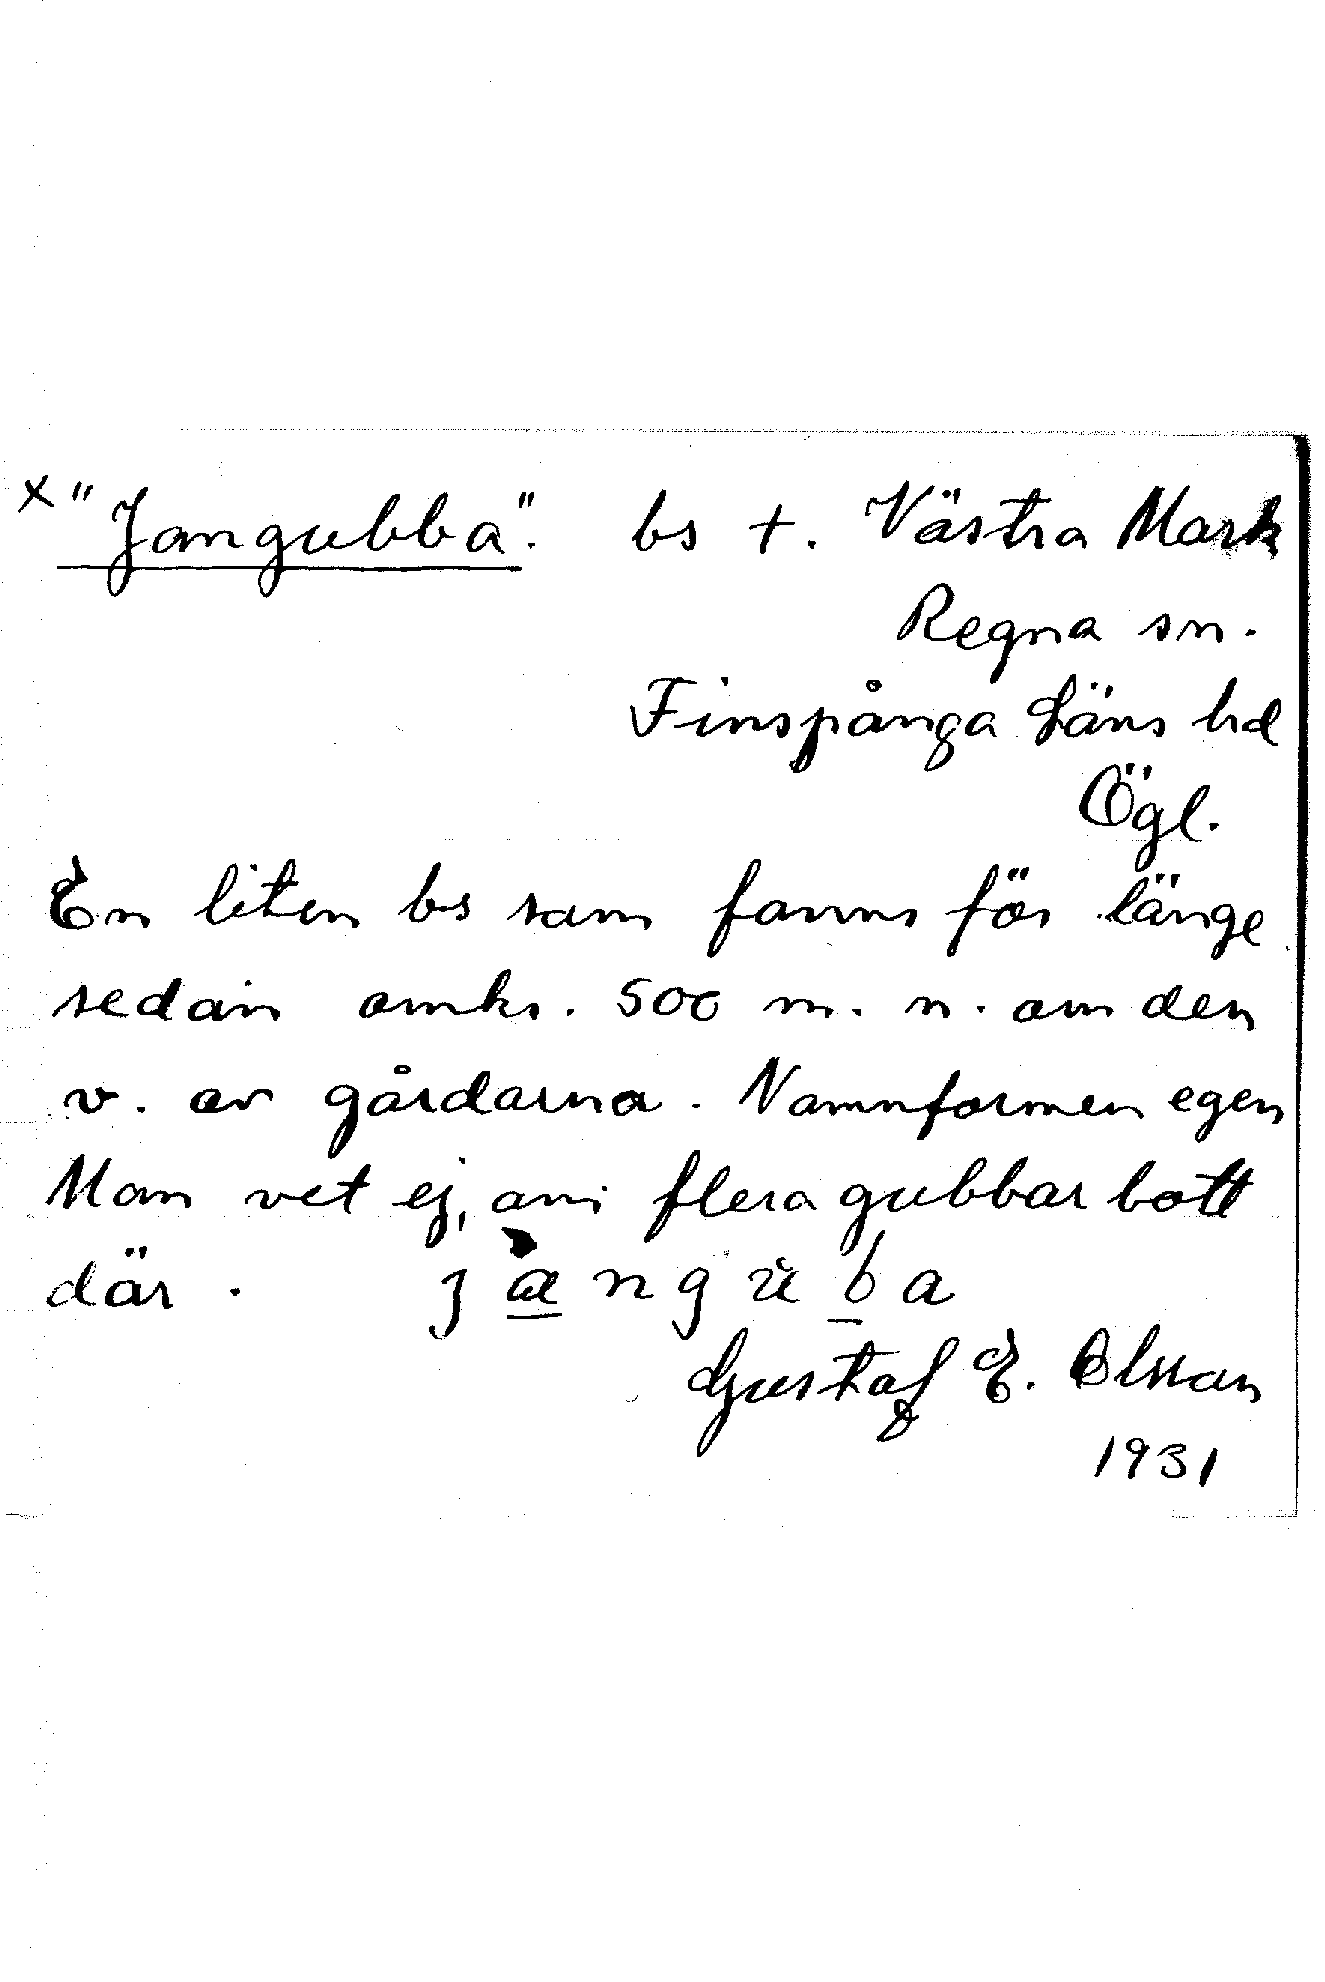 x "Jangubba". bs +. Västra Mark
Regna sn.
Finspånga Läns hd
Ögl.
En liten bs som fanns för länge
sedan omkr. 500 m. n. om den
v. av gårdarna. Namnformen egen
Man vet ej, om flera gubbar bott
där.
Gustaf E. Olsson
1931